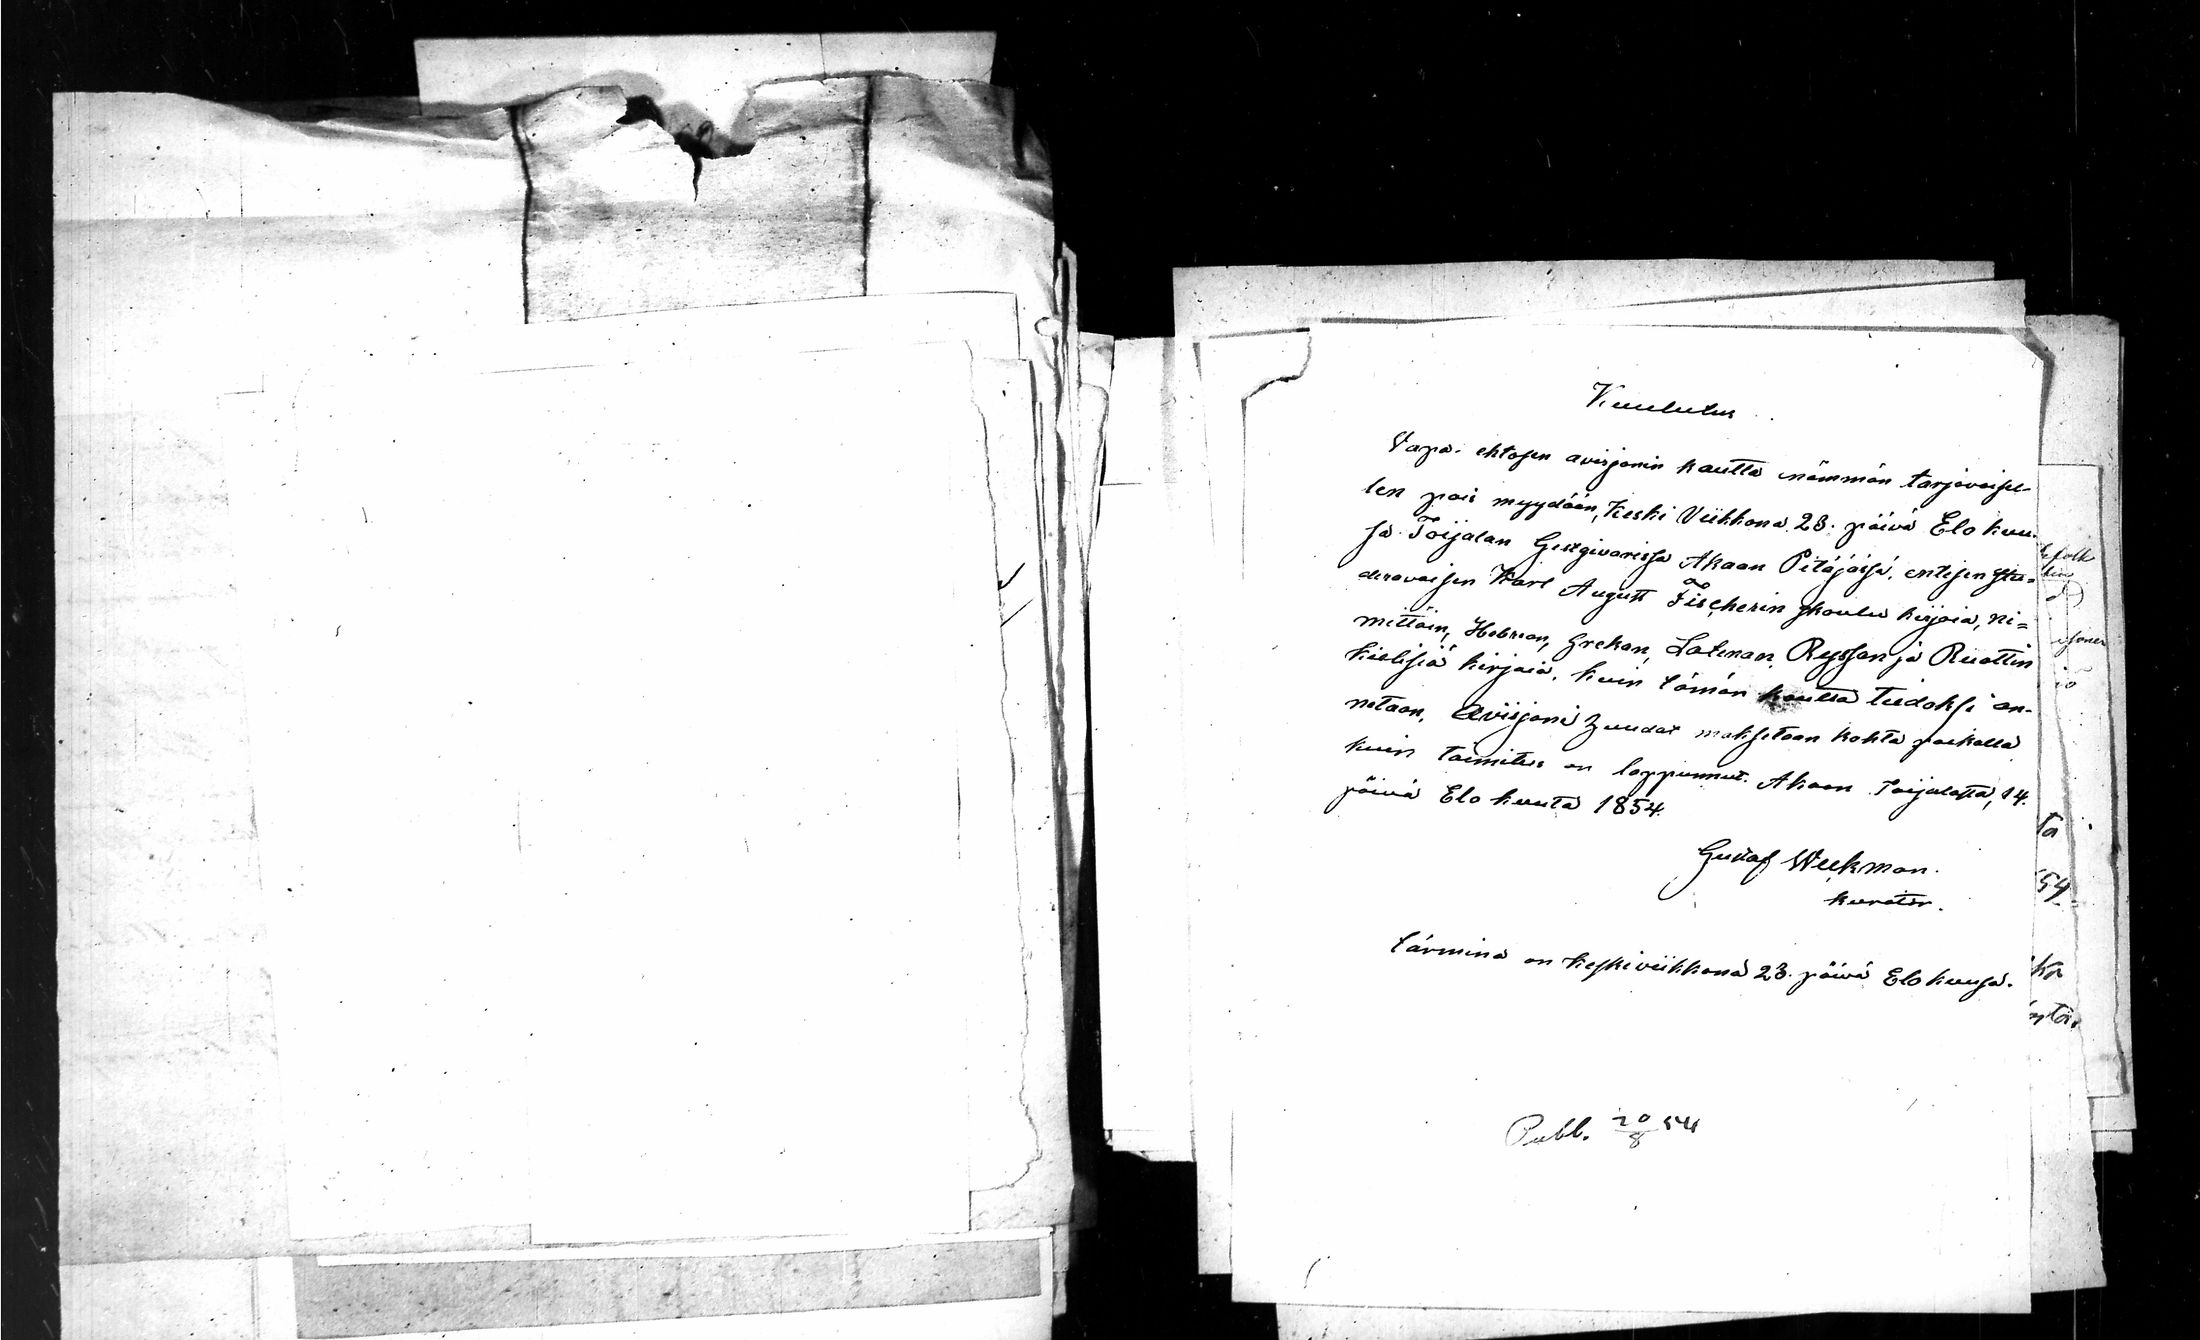 Kuulutus
Vapa. ehtosen avisjonin kautta enämmän tarjovaisel-
len pois myydään, Keski Viikkona 23. päivä Elo kuu-
sa Toijalan Gestgivarissa Akaan Pitäjässä, entisen Stu-
deravaisen Karl August Fischerin skoulu kirjoia, ni=
mittäin, Hebrean, Grekan, Latinan, Ryssan ja Ruottin
kielisiä kirjoia, kuin tämän kautta tiedoksi an-
netaan. Avisjoni Zuudat maksetaan kohta paikalla
kuin toimitus on loppunnut. Akaan Toijalasta, 14.
päivä Elo kuuta 1854.
Gustaf Weekman.
kurator.
Tärminä on keskiviikkona 23. päivä Elo kuusa.
Publ. 20/8 54
ta
54.